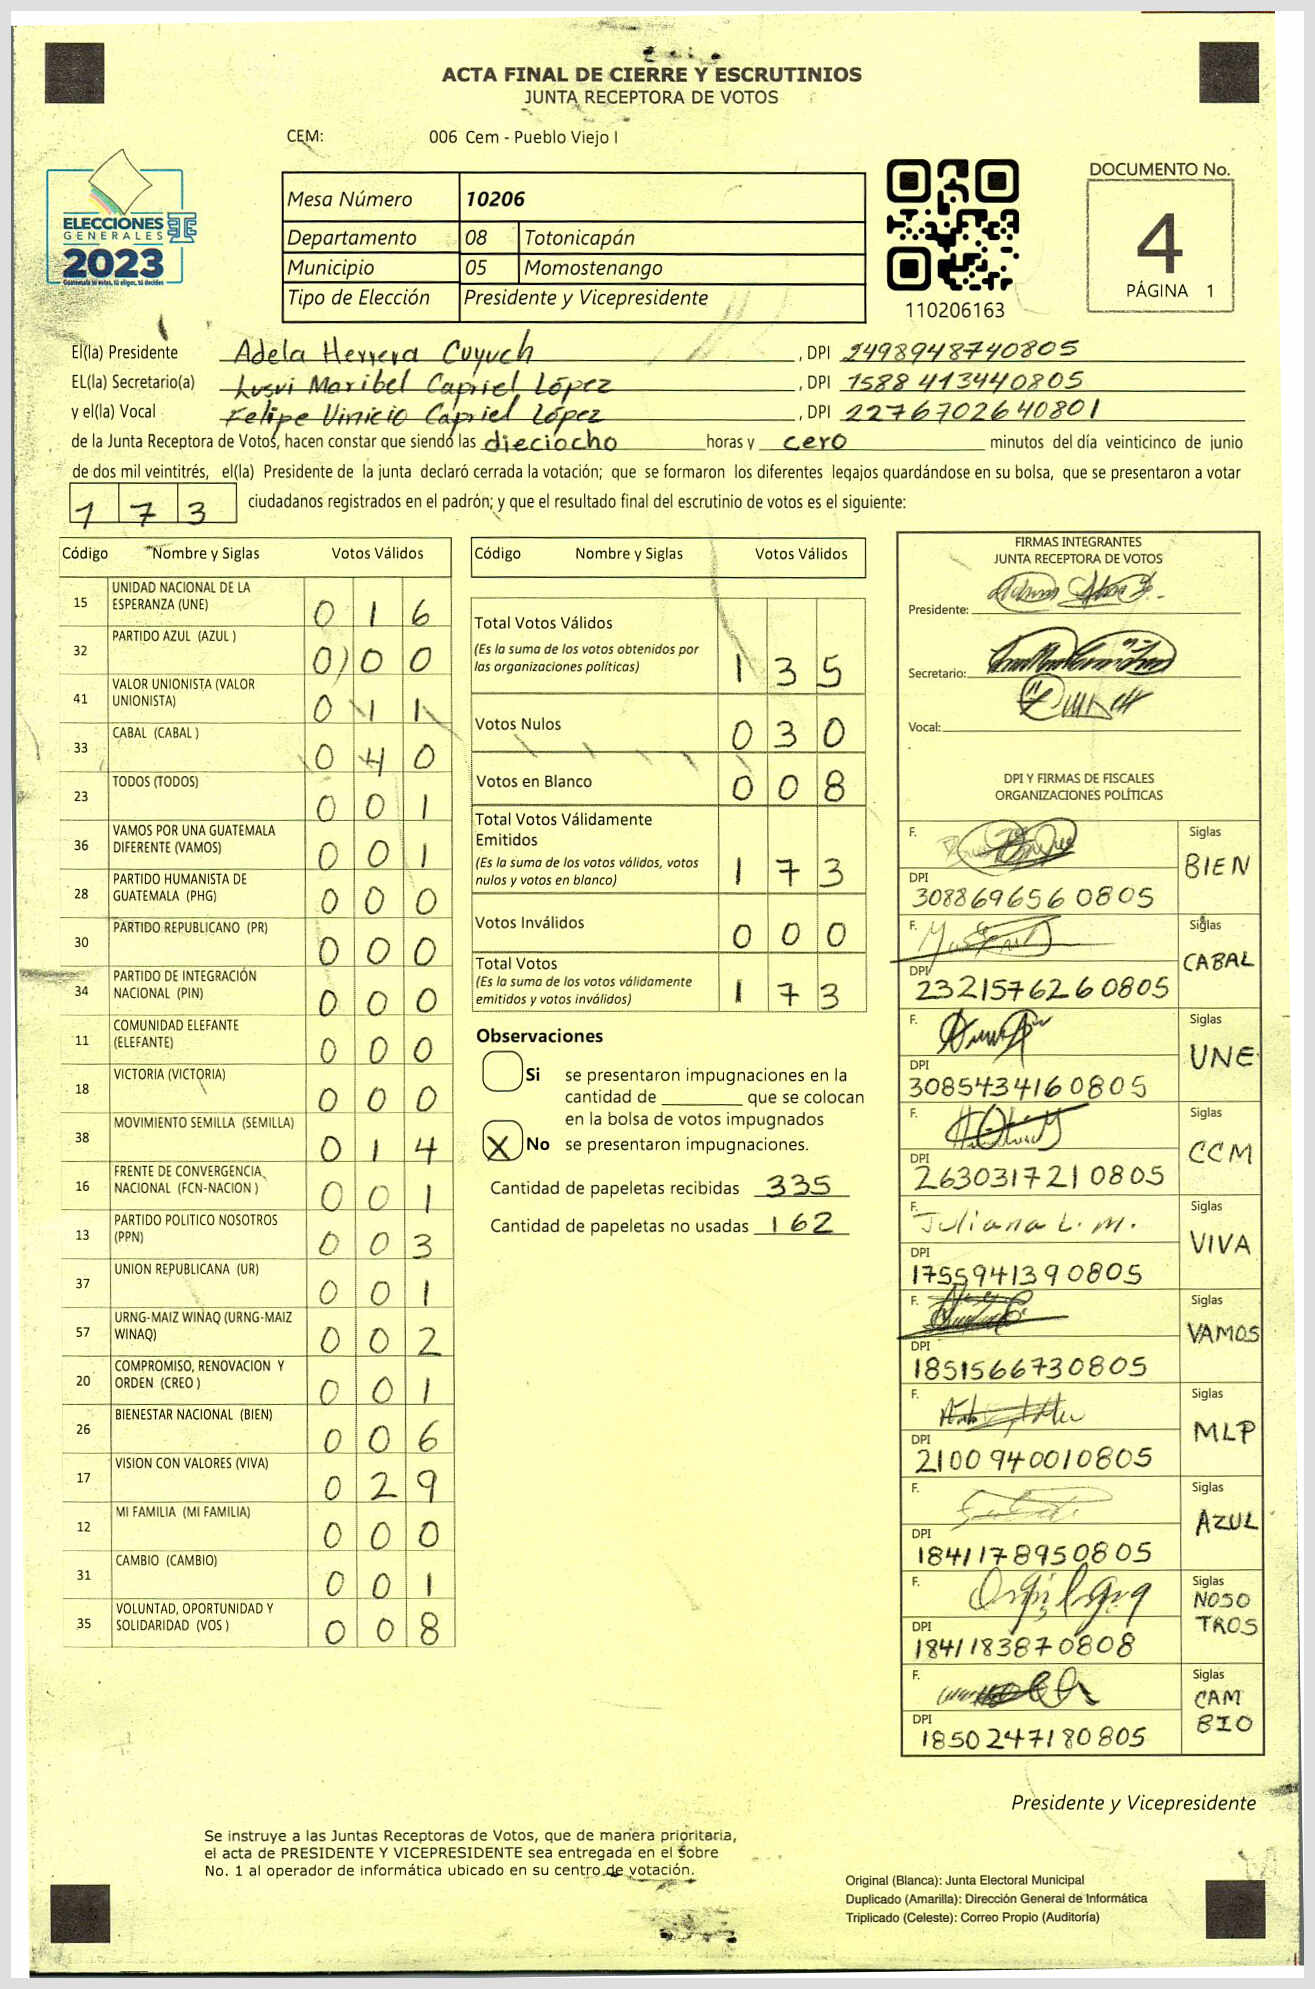 ACTA FINAL DE CIERRE Y ESCRUTINIOS
JUNTA RECEPTORA DE VOTOS
CEM: 006 Cem - Pueblo Viejo I
ELECCIONES
GENERALES
2023
Guatemala tu votas, tú eliges, tú decides
Mesa Número 10206
Departamento 08 Totonicapán
Municipio 05 Momostenango
Tipo de Elección Presidente y Vicepresidente
110206163
DOCUMENTO No.
4
PÁGINA 1
El(la) Presidente Adela Herrera Cuyuch , DPI 2498948740805
EL(la) Secretario(a) Lusvi Maribel Capriel López , DPI 1588413440805
y el(la) Vocal Felipe Vinicio Capriel López , DPI 2276702640801
de la Junta Receptora de Votos, hacen constar que siendo las dieciocho horas y cero minutos del día veinticinco de junio
de dos mil veintitrés, el(la) Presidente de la junta declaró cerrada la votación; que se formaron los diferentes legajos guardándose en su bolsa, que se presentaron a votar
173 ciudadanos registrados en el padrón; y que el resultado final del escrutinio de votos es el siguiente:
Código Nombre y Siglas Votos Válidos
15 UNIDAD NACIONAL DE LA ESPERANZA (UNE) 016
32 PARTIDO AZUL (AZUL ) 000
41 VALOR UNIONISTA (VALOR UNIONISTA) 011
33 CABAL (CABAL ) 040
23 TODOS (TODOS) 001
36 VAMOS POR UNA GUATEMALA DIFERENTE (VAMOS) 001
28 PARTIDO HUMANISTA DE GUATEMALA (PHG) 000
30 PARTIDO REPUBLICANO (PR) 000
34 PARTIDO DE INTEGRACIÓN NACIONAL (PIN) 000
11 COMUNIDAD ELEFANTE (ELEFANTE) 000
18 VICTORIA (VICTORIA) 000
38 MOVIMIENTO SEMILLA (SEMILLA) 014
16 FRENTE DE CONVERGENCIA NACIONAL (FCN-NACION ) 001
13 PARTIDO POLITICO NOSOTROS (PPN) 003
37 UNION REPUBLICANA (UR) 001
57 URNG-MAIZ WINAQ (URNG-MAIZ WINAQ) 002
20 COMPROMISO, RENOVACION Y ORDEN (CREO ) 001
26 BIENESTAR NACIONAL (BIEN) 006
17 VISION CON VALORES (VIVA) 029
12 MI FAMILIA (MI FAMILIA) 000
31 CAMBIO (CAMBIO) 001
35 VOLUNTAD, OPORTUNIDAD Y SOLIDARIDAD (VOS ) 008
Código Nombre y Siglas Votos Válidos
Total Votos Válidos 135
(Es la suma de los votos obtenidos por
las organizaciones políticas)
Votos Nulos 030
Votos en Blanco 008
Total Votos Válidamente
Emitidos 173
(Es la suma de los votos válidos, votos
nulos y votos en blanco)
Votos Inválidos 000
Total Votos 173
(Es la suma de los votos válidamente
emitidos y votos inválidos)
Observaciones
Si se presentaron impugnaciones en la
cantidad de ________ que se colocan
en la bolsa de votos impugnados
X No se presentaron impugnaciones.
Cantidad de papeletas recibidas 335
Cantidad de papeletas no usadas 162
FIRMAS INTEGRANTES
JUNTA RECEPTORA DE VOTOS
Presidente:
Secretario:
Vocal:
DPI Y FIRMAS DE FISCALES
ORGANIZACIONES POLÍTICAS
F. Siglas BIEN
DPI 3088696560805
F. Siglas CABAL
DPI 2321576260805
F. Siglas UNE
DPI 3085434160805
F. Siglas CCM
DPI 2630317210805
F. Juliana L. M. Siglas VIVA
DPI 1755941390805
F. Siglas VAMOS
DPI 1851566730805
F. Siglas MLP
DPI 2100940010805
F. Siglas AZUL
DPI 1841178950805
F. Siglas NOSO TROS
DPI 1841183870808
F. Siglas CAM BIO
DPI 1850247180805
Presidente y Vicepresidente
Se instruye a las Juntas Receptoras de Votos, que de manera prioritaria,
el acta de PRESIDENTE Y VICEPRESIDENTE sea entregada en el sobre
No. 1 al operador de informática ubicado en su centro de votación.
Original (Blanca): Junta Electoral Municipal
Duplicado (Amarilla): Dirección General de Informática
Triplicado (Celeste): Correo Propio (Auditoría)